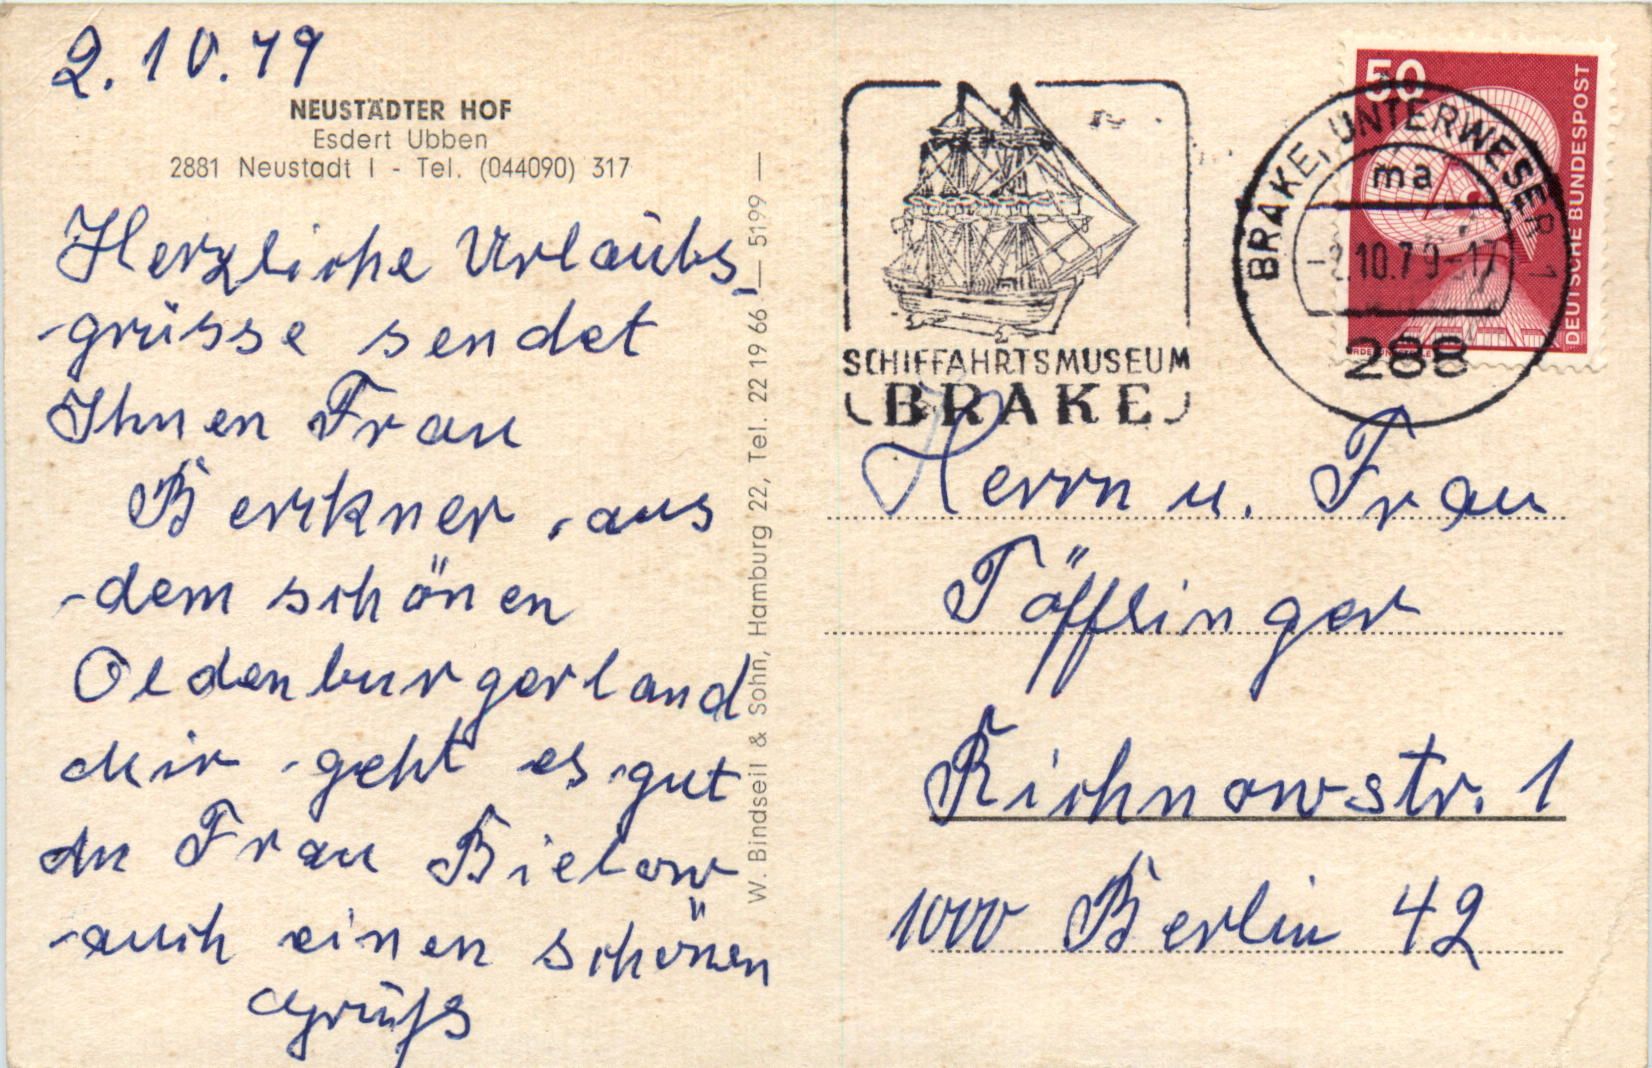 2.10.79
NEUSTÄDTER HOF
Esdert Ubben
2881 Neustadt I - Tel. (044090) 317
Herzliche Urlaubs-
grüsse sendet
Ihnen Frau
Berkner, aus
dem schönen
Oldenburgerland
mir geht es gut
An Frau Bielow
auch einen schönen
Gruß
W. Bindseil & Sohn, Hamburg 22, Tel. 22 19 66 — 5199 —
SCHIFFAHRTSMUSEUM
BRAKE
BRAKE, UNTERWESER 1
ma
-2.10.79-17
288
50
DEUTSCHE BUNDESPOST
Herrn u. Frau
Töfflinger
Richnowstr. 1
1000 Berlin 42